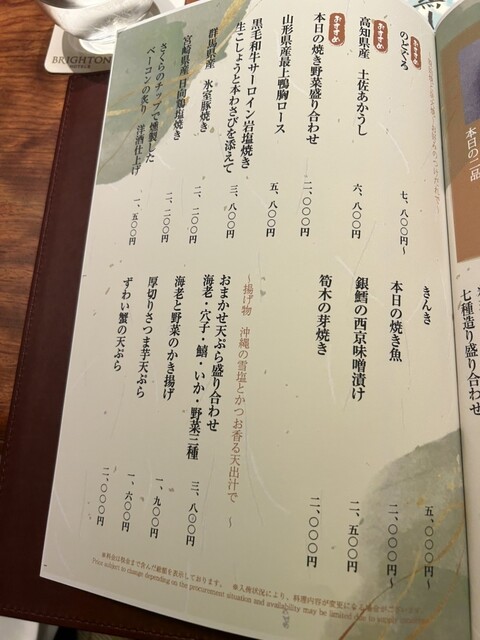 おすすめ
のどぐろ
七、八〇〇円～
おすすめ
高知県産 土佐あかうし
六、八〇〇円
おすすめ
本日の焼き野菜盛り合わせ
二、〇〇〇円
山形県産最上鴨胸ロース
五、八〇〇円
黒毛和牛サーロイン岩塩焼き
生こしょうと本わさびを添えて
三、八〇〇円
群馬県産 氷室豚焼き
二、二〇〇円
宮崎県産日向鶏塩焼き
二、二〇〇円
さくらのチップで燻製した
ベーコンの炙り 洋酒仕上げ
一、五〇〇円
きんき
五、〇〇〇円
本日の焼き魚
二、〇〇〇円～
銀鱈の西京味噌漬け
二、五〇〇円
筍木の芽焼き
二、〇〇〇円
～揚げ物 沖縄の雪塩とかつお香る天出汁で ～
おまかせ天ぷら盛り合わせ
海老・穴子・鱚・いか・野菜三種
三、八〇〇円
海老と野菜のかき揚げ
一、九〇〇円
厚切りさつま芋天ぷら
一、六〇〇円
ずわい蟹の天ぷら
二、〇〇〇円
※料金は税金まで含んだ総額を表示しております。 ※入荷状況により、料理内容が変更になる場合がございます
Price subject to change depending on the procurement situation and availability may be limited due to supply
本日の一品
七種造り盛り合わせ
BRIGHTON